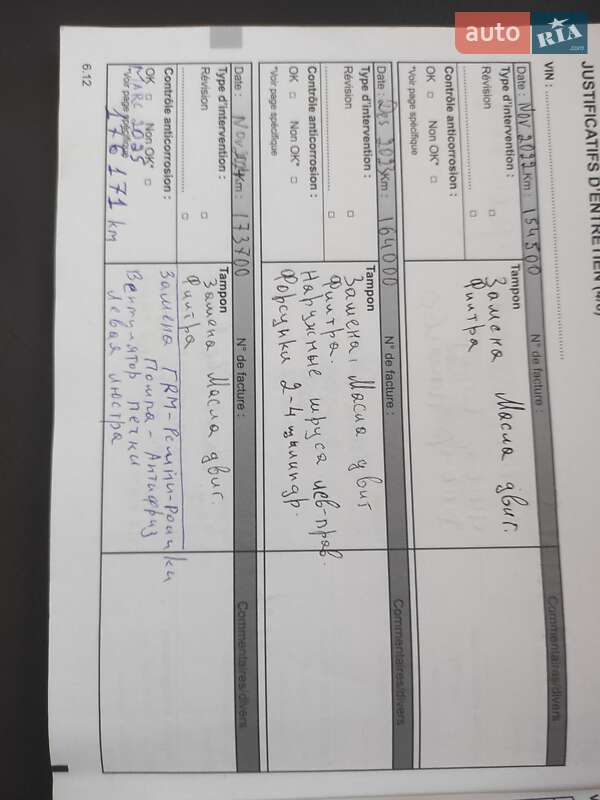 auto RIA .com
JUSTIFICATIFS D'ENTRETIEN (4/6)
VIN : 
Date : Nov 2022 Km : 154500
N° de facture :
Commentaires/divers
Type d'intervention :
Tampon
Révision
Замена Масла двиг.
Филтра
Contrôle anticorrosion :
OK Non OK*
*Voir page spécifique
Date : Des 2023 Km : 164000
N° de facture :
Commentaires/divers
Type d'intervention :
Tampon
Révision
Замена, Масла двиг
Филтра.
Наружные шруса лев-прав.
Форсунки 2-4 цылиндр.
Contrôle anticorrosion :
OK Non OK*
*Voir page spécifique
Date : Nov Km : 173700
N° de facture :
Commentaires/divers
Type d'intervention :
Tampon
Révision
Замена Масла двиг.
Филтра
Contrôle anticorrosion :
OK Non OK*
*Voir page spécifique
Марс 2025
176171 km
Замена ГRM-Ремни-Ролики
Помпа-Антифриз
Вентулятор печки
Левая люстра
6.12